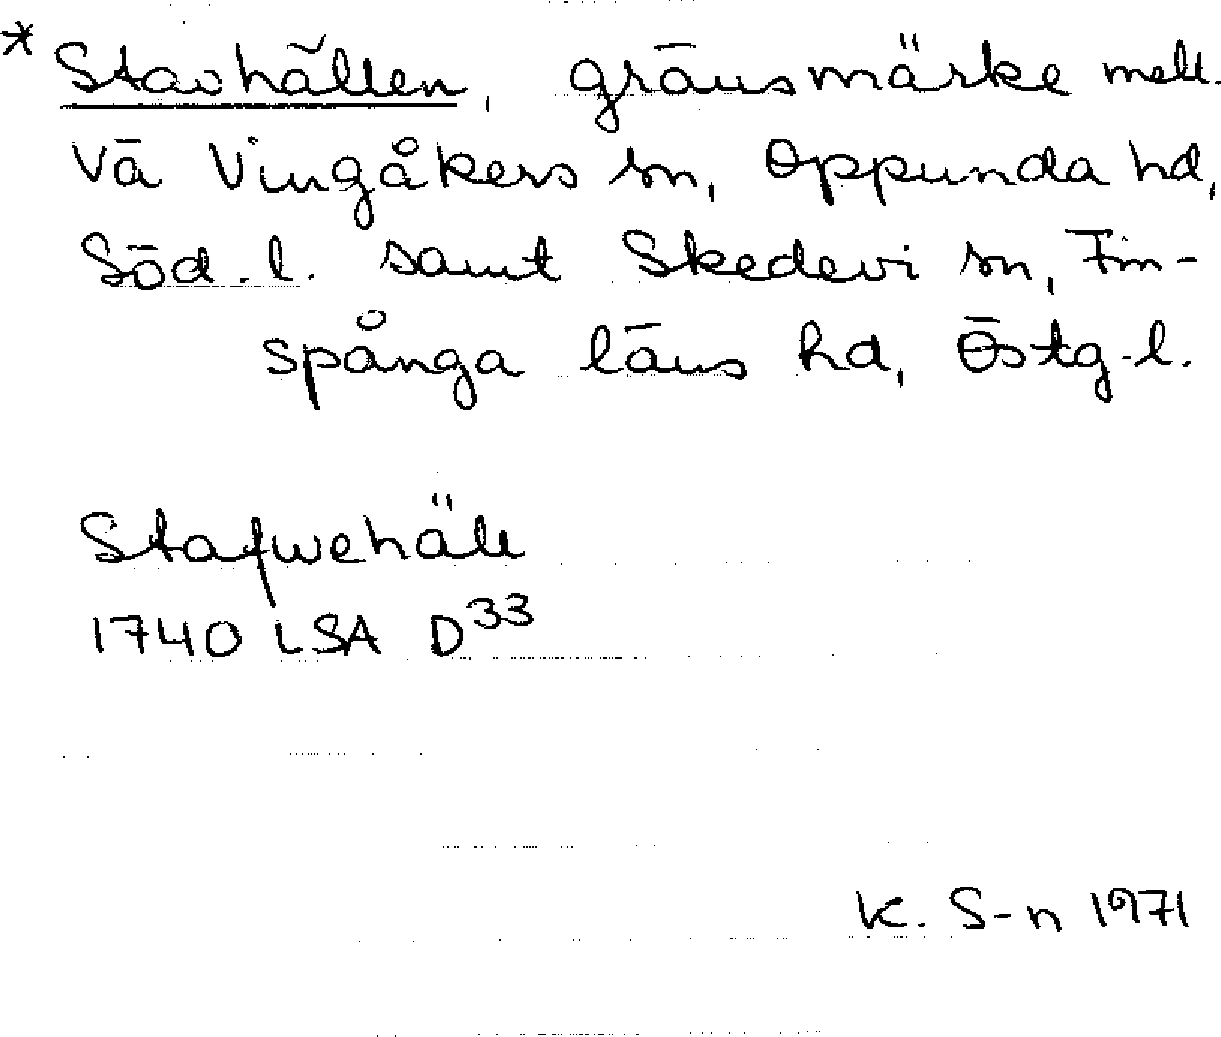 * Stavhällen, gränsmärke mell.
Vä Vingåkers sn, Oppunda hd,
Söd.l. samt Skedevi sn, Fin-
spånga läns hd, Östg.l.
Stafwehäll
1740 LSA D33
K. S-n 1971